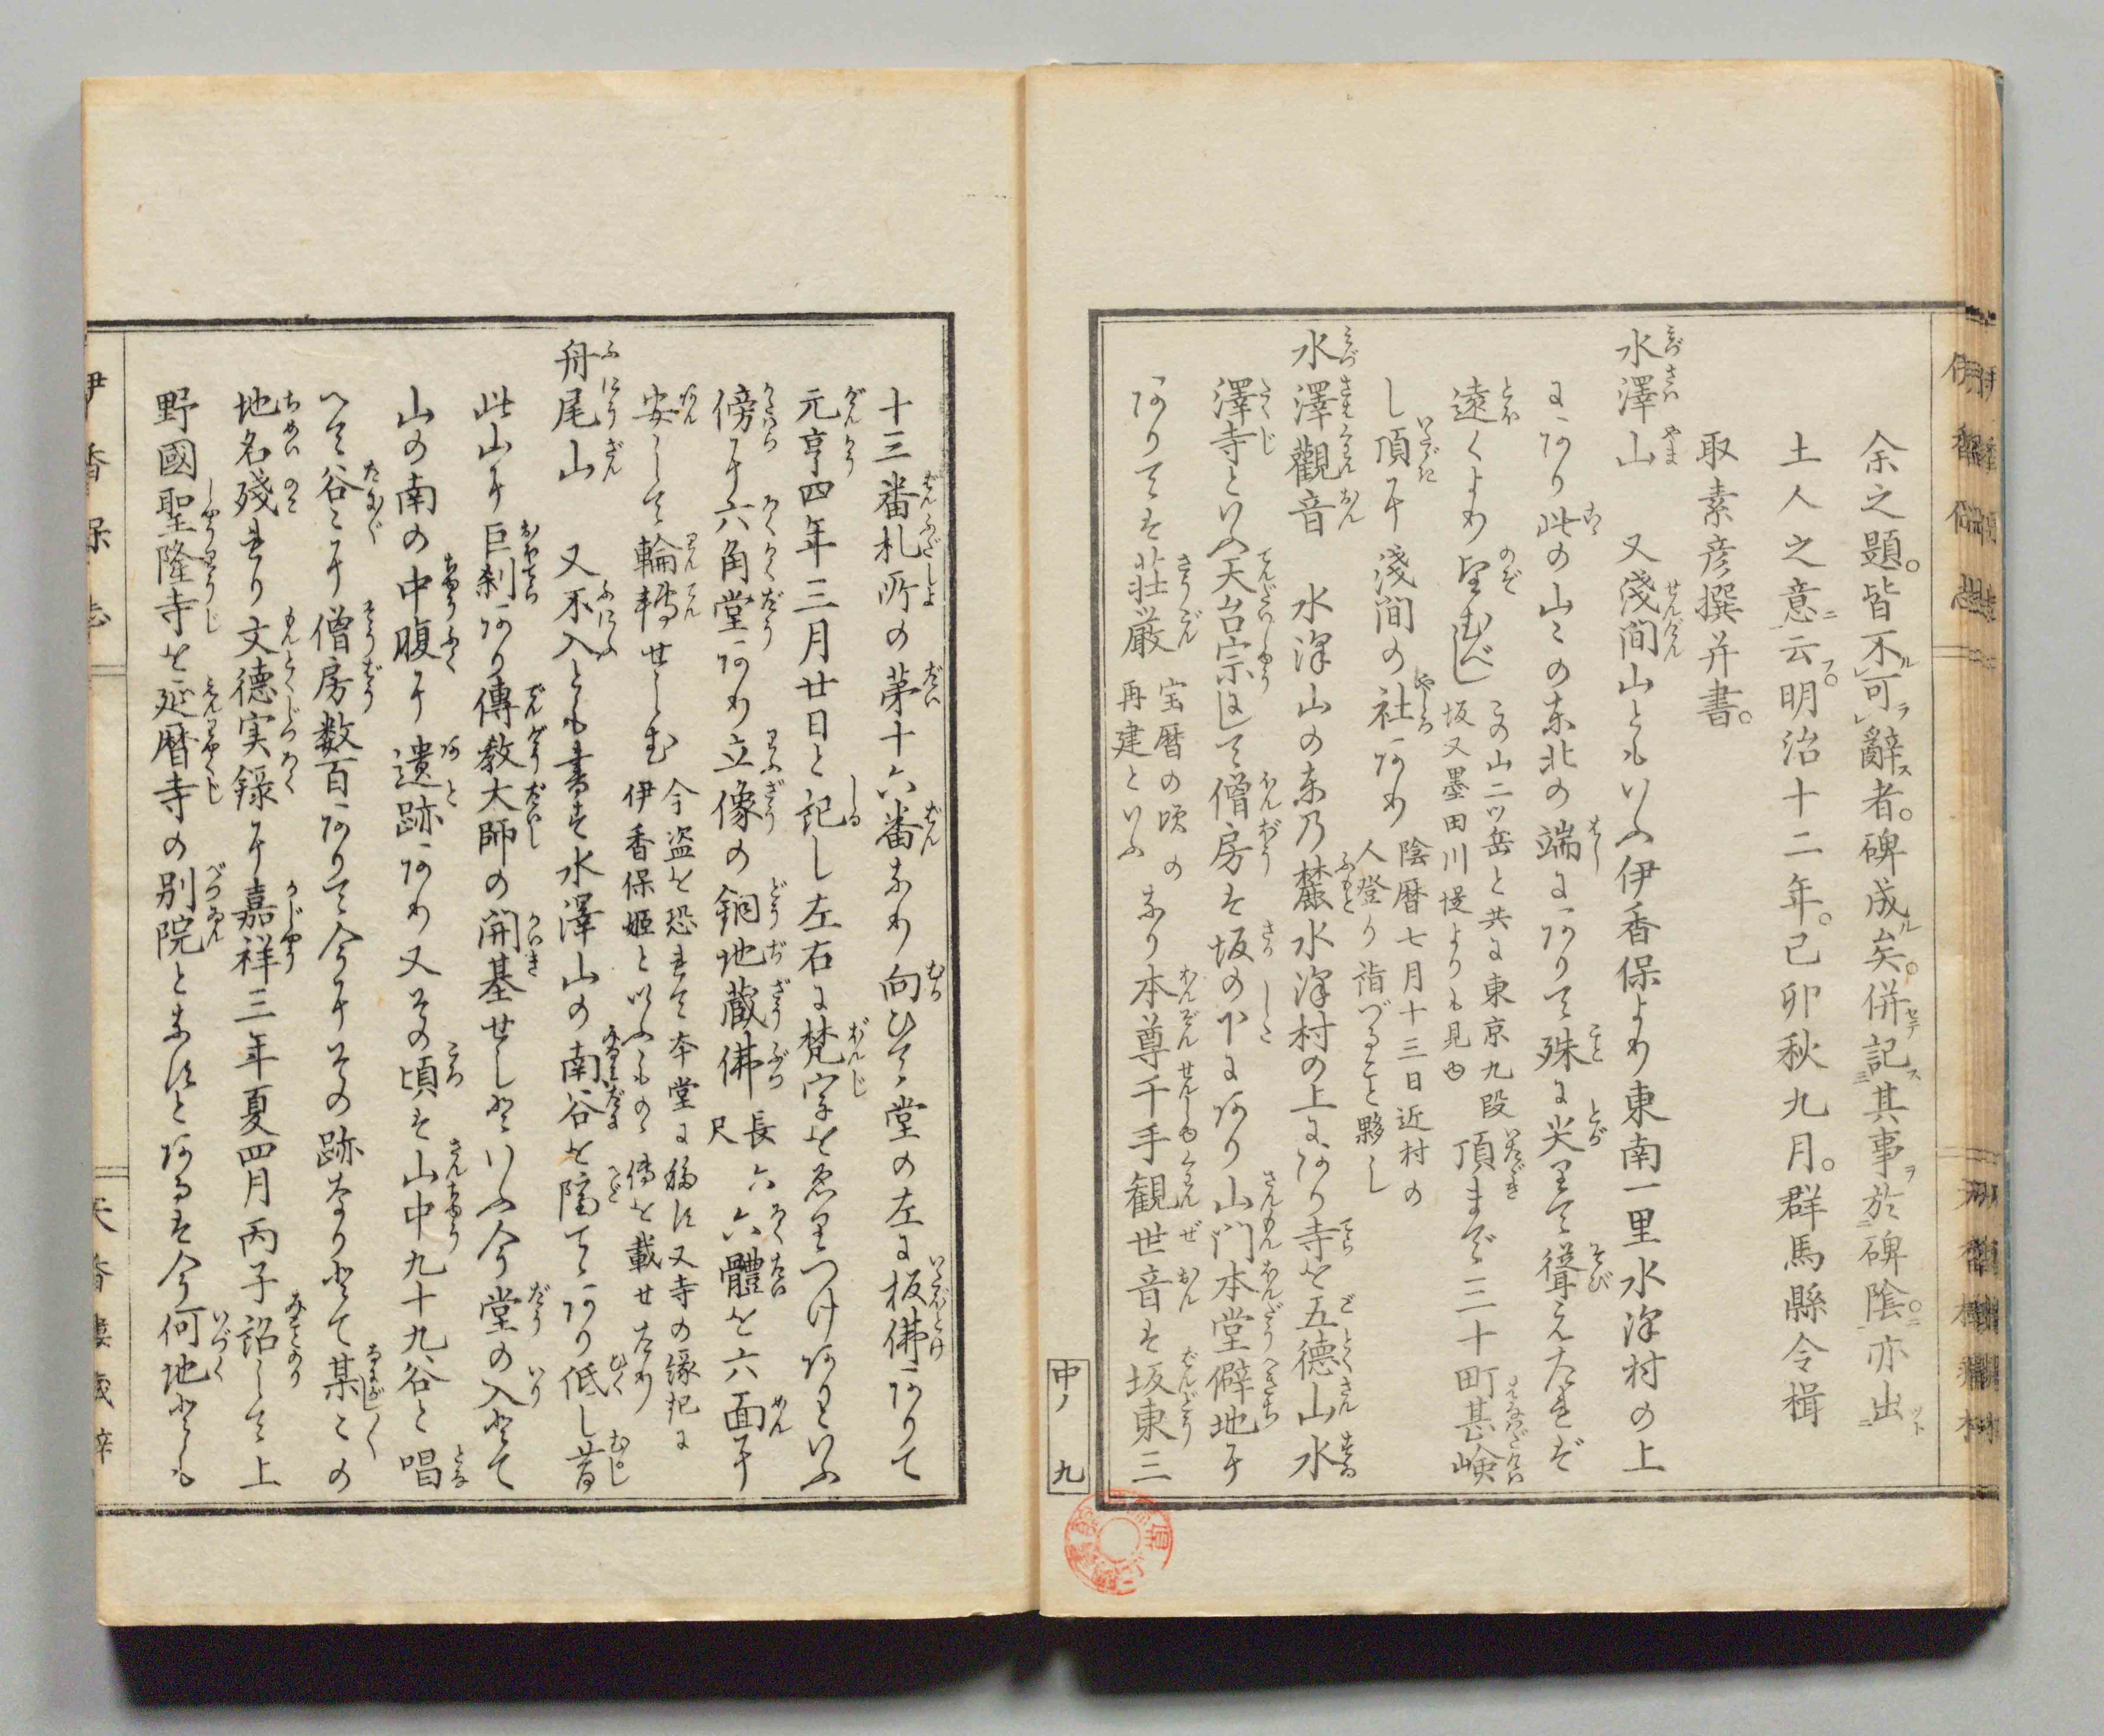 余之題。皆不可辭者。碑成矣。併記其事於碑陰。亦出
土人之意云。明治十二年。己卯秋九月。群馬縣令楫
取素彦撰并書。
水澤山　又淺間山ともいふ伊香保より東南一里水澤村の上
にあり此の山〻の東北の端にありて殊に尖りて聳えたれば
遠くより望むべし この山二ッ岳と共に東京九段坂又墨田川堤よりも見ゆ 頂まで三十町甚嶮
し頂に淺間の社あり 陰暦七月十三日近村の人登り詣づること夥し
水澤觀音　水澤山の東乃麓水澤村の上にあり寺を五德山水
澤寺といふ天台宗にして僧房は坂の下にあり山門本堂僻地に
ありては莊厳 宝暦の頃の再建といふ なり本尊千手観世音は坂東三
中ノ九
十三番札所の第十六番なり向ひて堂の左に板佛ありて
元亨四年三月廿日と記し左右に梵字をゑりつけありといふ
傍に六角堂あり立像の銅地藏佛 長六尺 六體を六面に
安んして輪轉せしむ 今盗を恐れて本堂に移す又寺の縁起に伊香保姫といふものゝ傳を載せたり
舟尾山　又不入とも書す水澤山の南谷を隔てゝあり低し昔
此山に巨刹あり傳教大師の開基せしといふ今堂の入とて
山の南の中腹に遺跡あり又その頃は山中九十九谷と唱
へて谷〻に僧房数百ありて今にその跡なりとて某〻の
地名殘れり文德実錄に嘉祥三年夏四月丙子詔して上
野國聖隆寺を延暦寺の別院となすとあるは今何地とも
伊香保志